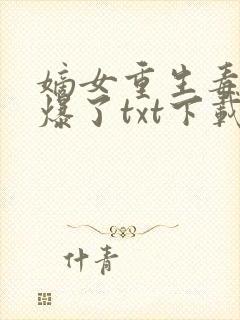 嫡女重生毒
爆了txt下載
什青